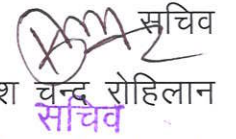 सचिव
श चन्द रोहिलान
सचिव